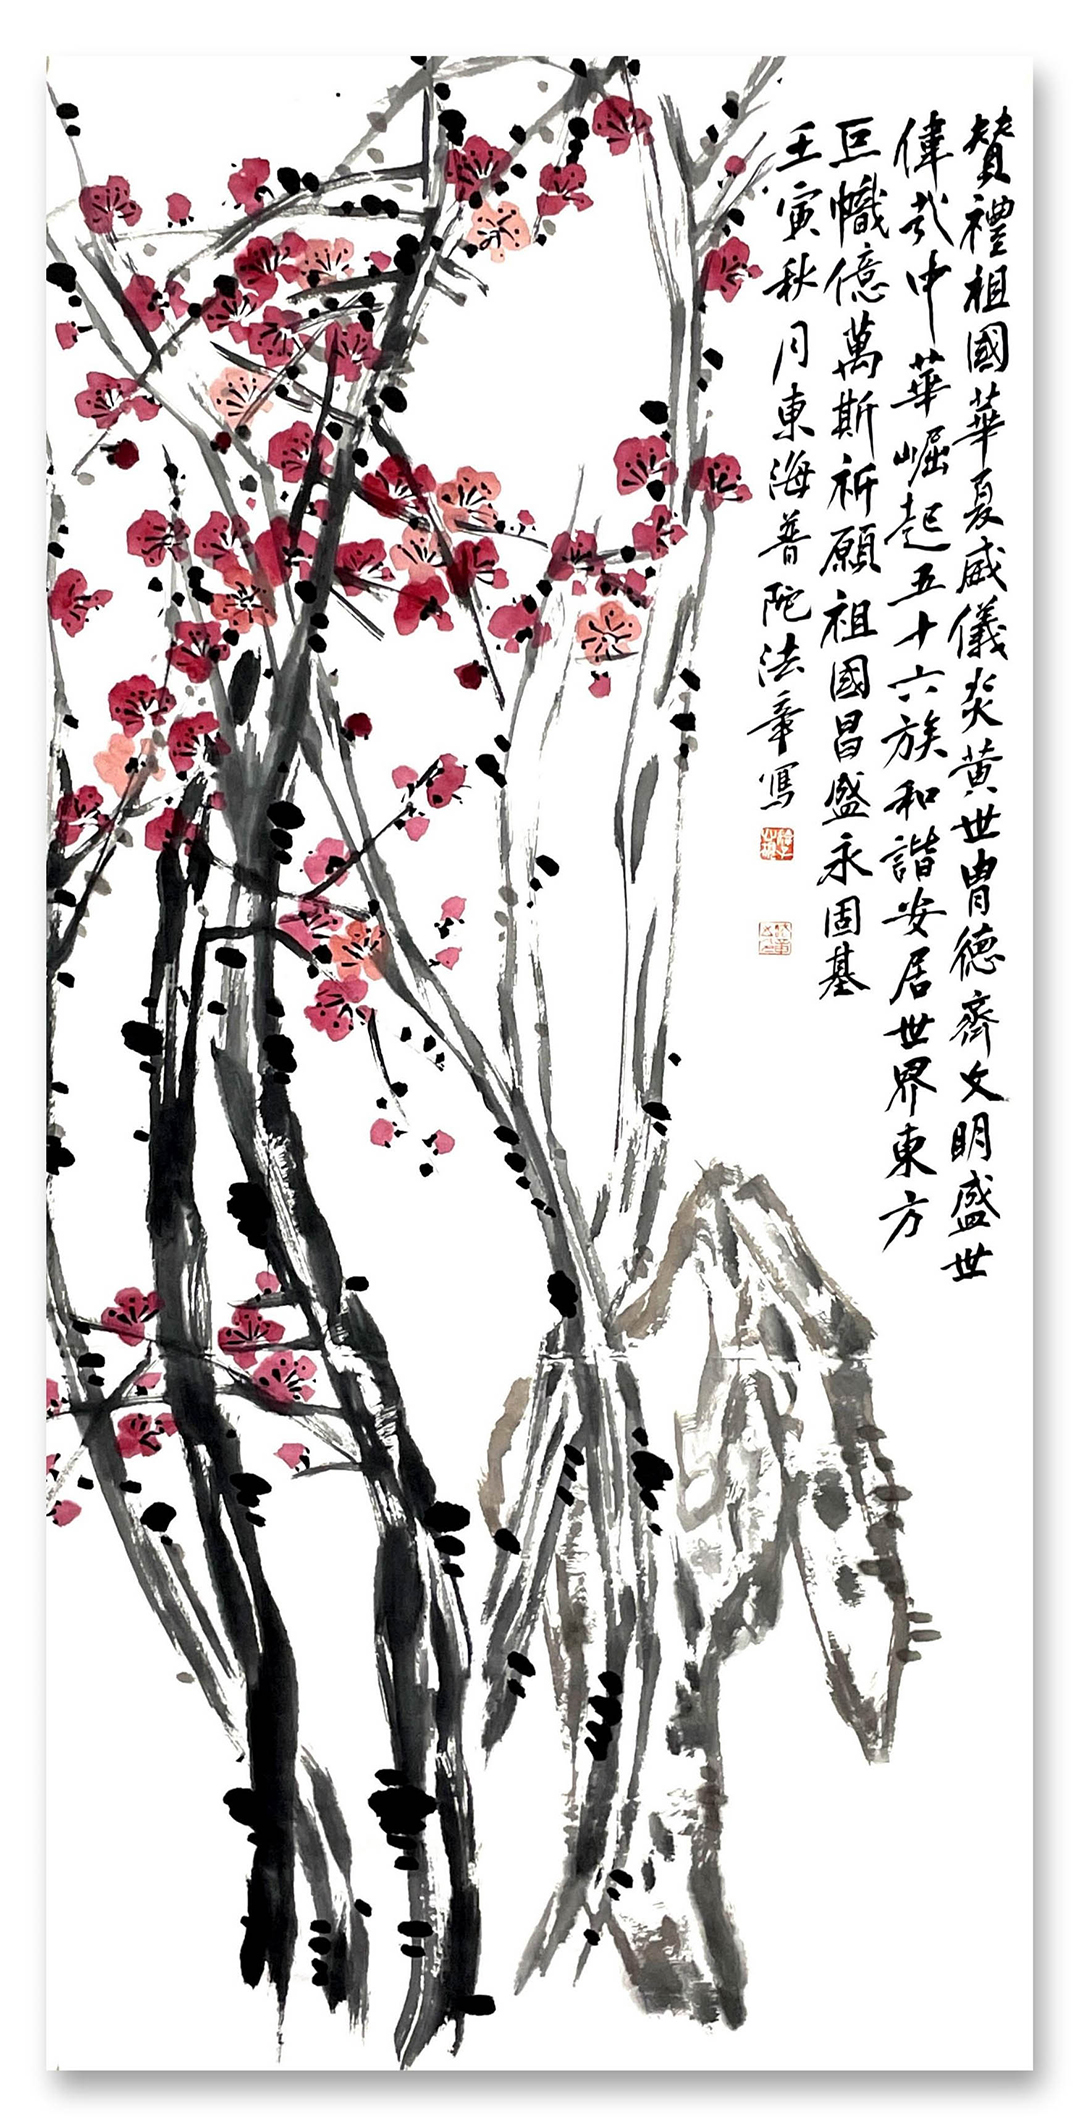 贊禮祖國華夏威儀炎黄世胄德齊文明盛世
偉哉中華崛起五十六族和諧安居世界東方
巨幟億萬斯祈願祖國昌盛永固基
壬寅秋月東海普陀法章寫